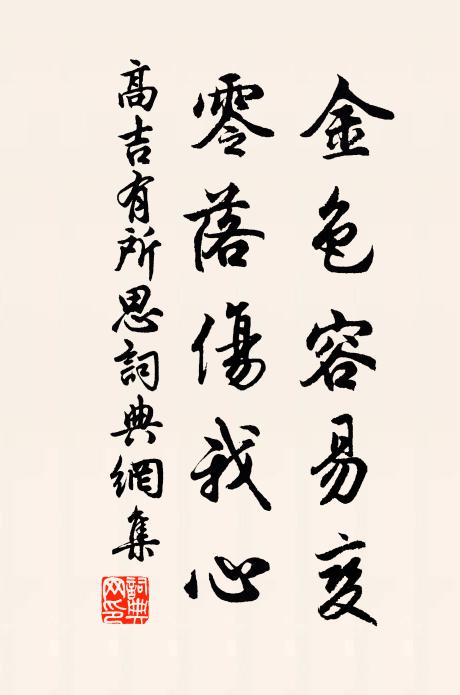 金色容易变
零落傷我心
高吉有所思詞典網集
詞典网印